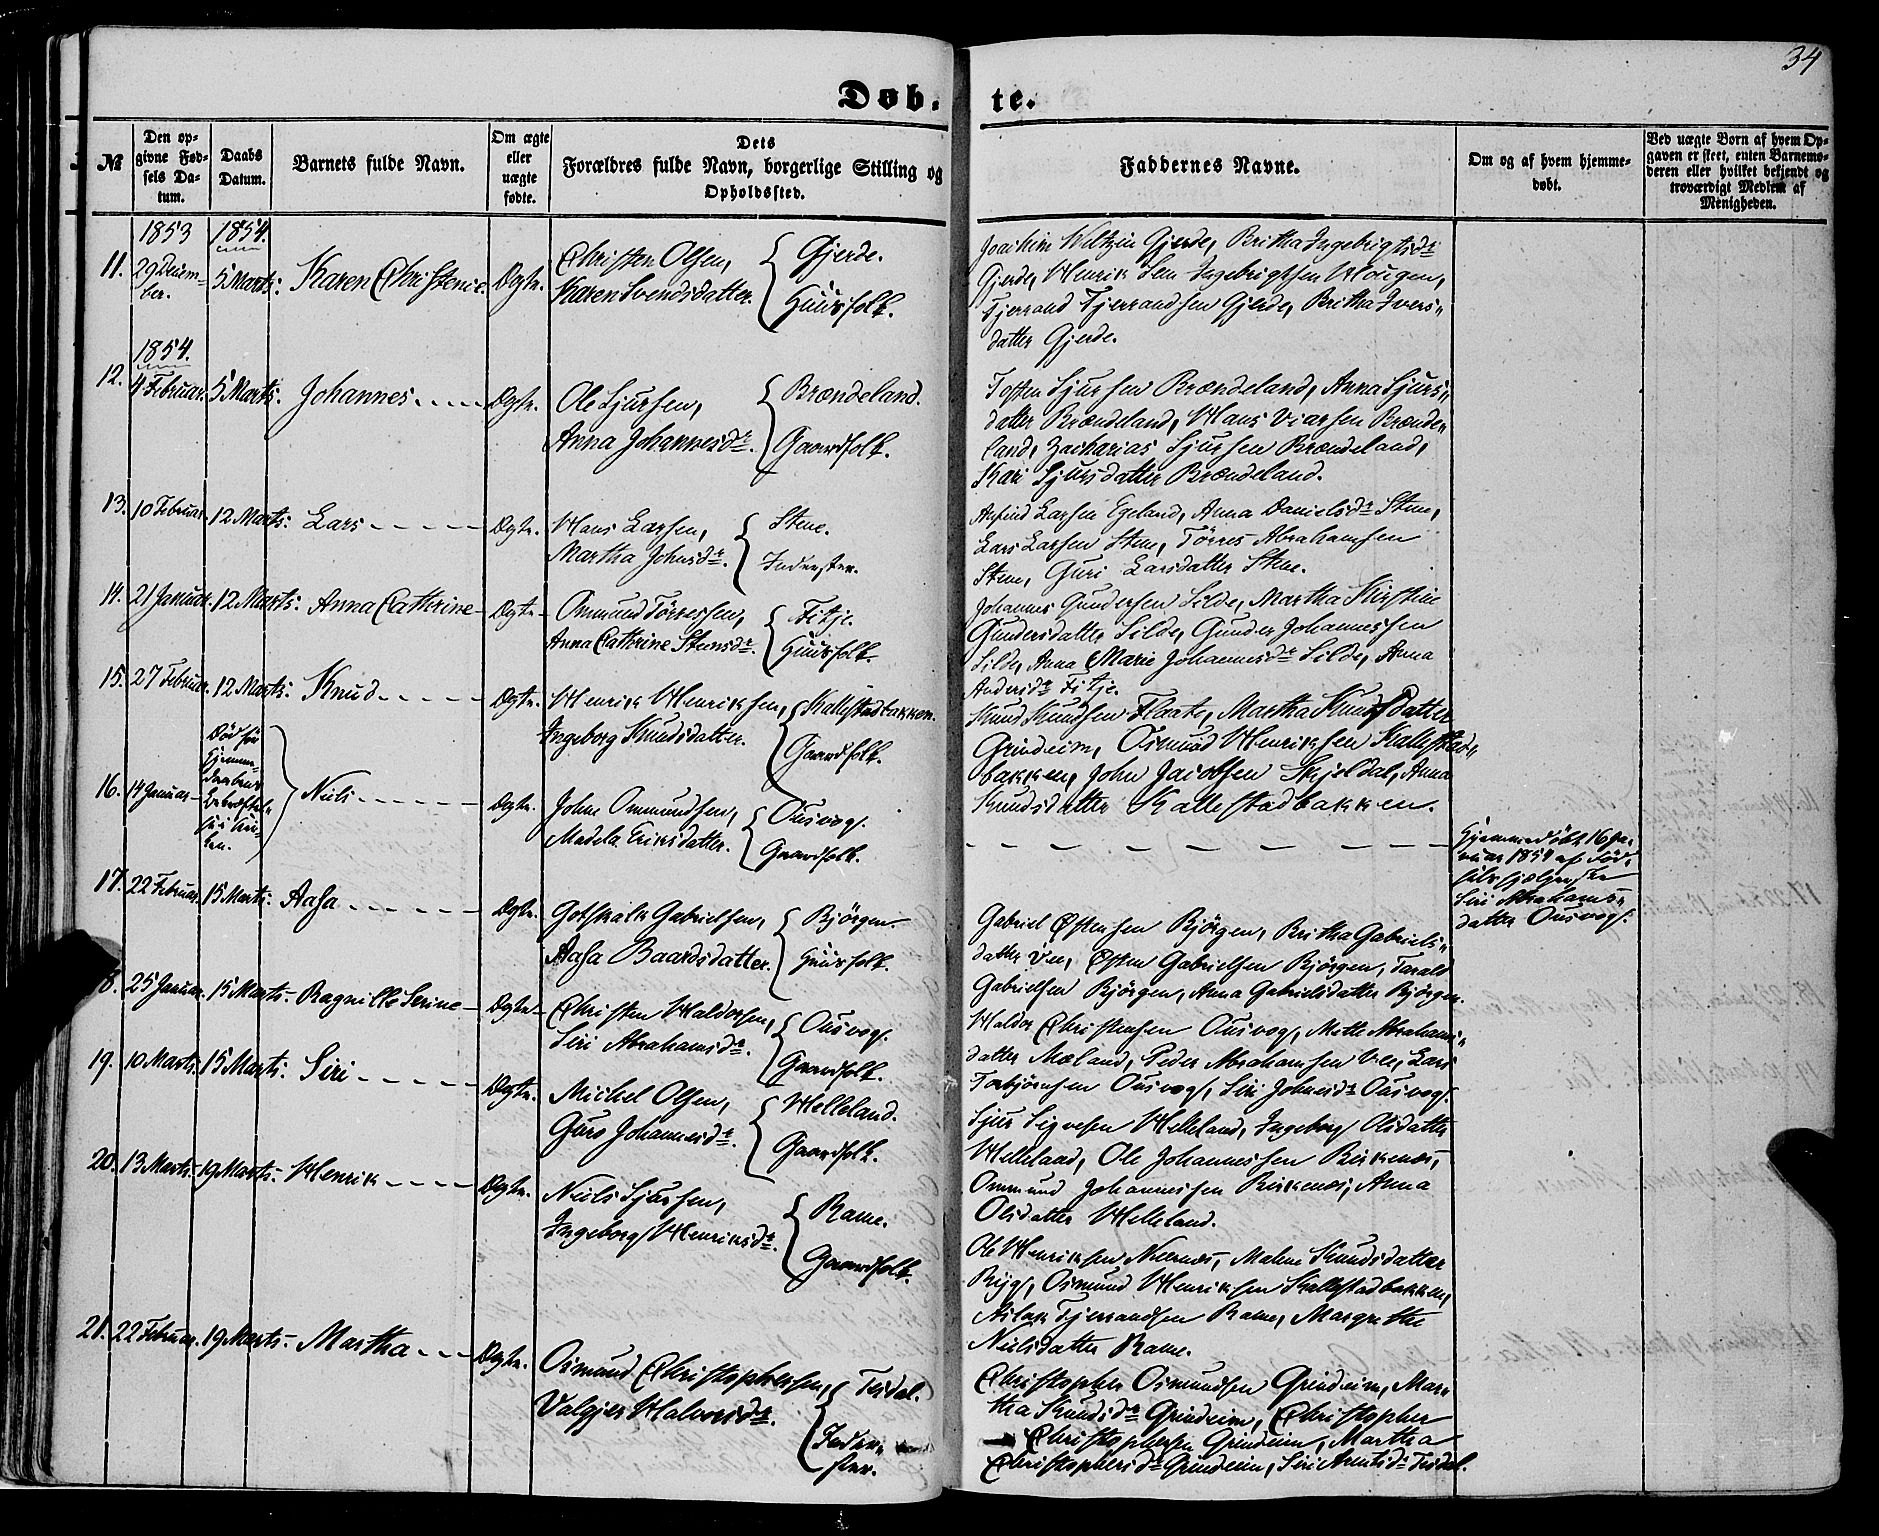 34
Døb. te.
№
Den opgivne Fødsels Datum.
Daabs Datum.
Barnets fulde Navn.
Om ægte eller uægte fødte.
Dets Forældres fulde Navn, borgerlige Stilling og Opholdssted.
Faddernes Navne.
Om og af hvem hjemmedøbt.
Ved uægte Børn af hvem Opgaven er skeet, enten Barnemoderen eller hvilket bekjendt og troværdigt Medlem af Menigheden.
1853 1854.
11. 29 Decem-
ber. 5 Marts: Karen Christence. Ægte.
Christen Olsen, Gjerde.
Karen Svendsdatter. Huusfolk.
Joachim Weltzin Gjerde, Britha Ingebrigtsdr
Gjerde, Henrik Sem Ingebrigtsen Hougen,
Tjerrand Tjerrandsen Gjerde, Britha Ivers-
datter Gjerde.
1854.
12. 4 Februar. 5 Marts: Johannes. Ægte.
Ole Sjursen, Brændeland.
Anna Johannesdr. Gaardfolk.
Tosten Sjursen Brændeland, Anna Sjurs-
datter Brændeland, Hans Viarsen Brænde-
land, Zacharias Sjursen Brændeland,
Kari Sjursdatter Brændeland.
13. 10 Februar. 12 Marts: Lars Ægte.
Hans Larsen, Stene.
Martha Johnsdr. Inderster.
Arfind Larsen Egeland, Anna Danielsdr Stene,
Lars Larsen Stene, Törres Abrahamsen
Stene, Guri Larsdatter Stene.
14. 21 Januar. 12 Marts: Anna Cathrine Ægte
Ommund Törressen, Fitje.
Anna Cathrine Steensdr. Huusfolk.
Johannes Gundersen Silde, Martha Kirstine
Gundersdatter Silde, Gunder Johannessen
Silde, Anna Marie Johannesdr Silde, Anna
Andersdr Fitje.
15. 27 Februar. 12 Marts: Knud Ægte.
Henrik Henriksen, Kallestadbakken.
Ingeborg Knudsdatter. Gaardfolk.
Knud Knudsen Flaate, Martha Knudsdatter
Grindeim, Osmund Henriksen Kallestad-
bakken, John Jacobsen Skjeldal, Anna
Knudsdatter Kallestadbakken.
16. 14 Januar Död før
Hjemme-
daabens
Bekræftel-
se i Kir-
ken. Niels Ægte.
Johne Ommundsen, Ousvog.
Madela Eriksdatter. Gaardfolk.
Hjemmedöbt 16 Ja-
nuar 1854 af Föd-
selshjelperske
Siri Abrahams-
datter Ousvog.
17. 22 Februar. 15 Marts: Aasa Ægte.
Gotskalk Gabrielsen, Bjørgen.
Aasa Baardsdatter. Huusfolk.
Gabriel Østensen Bjørgen, Britha Gabriels-
datter Vee, Østen Gabrielsen Bjørgen, Tarald
Gabrielsen Bjørgen, Anna Gabrielsdatter Bjørgen.
8. 25 Januar. 15 Marts: Ragnille Serine Ægte
Christen Haldorsen, Ousvog.
Siri Abrahamsdr. Gaardfolk.
Haldor Christensen Ousvog, Mette Abrahams-
datter Mæland, Peder Abrahamsen Vee, Lars
Torbjørnsen Ousvog, Siri Johnesdr Ousvog.
19. 10 Marts. 15 Marts: Siri Ægte.
Michel Olsen, Helleland.
Guro Johannesdr. Gaardfolk.
Sjur Sigvesen Helleland, Ingeborg Olsdatter
Helleland, Ole Johannessen Birkenæs,
Ommund Johannessen Birkenæs, Anna
Olsdatter Helleland.
20. 13 Marts. 19 Marts: Henrik Ægte.
Niels Sjursen, Rame.
Ingeborg Henriksdr. Gaardfolk.
Ole Henriksen Næernæs, Malene Knudsdatter
Ryg, Osmund Henriksen Kallestadbakken,
Aslak Tjerrandsen Rame, Margrethe
Nielsdatter Rame.
21. 22 Februar. 19 Marts: Martha Ægte.
Osmund Christophersen, Tesdal.
Valgjer Halvorsdr. Inder-
ster.
Christopher Osmundsen Grindeim, Mar-
tha Knudsdr Grindeim, Christopher
Christophersen Grindeim, Martha
Christophersdr Grindeim, Siri Arntsdr Tesdal.